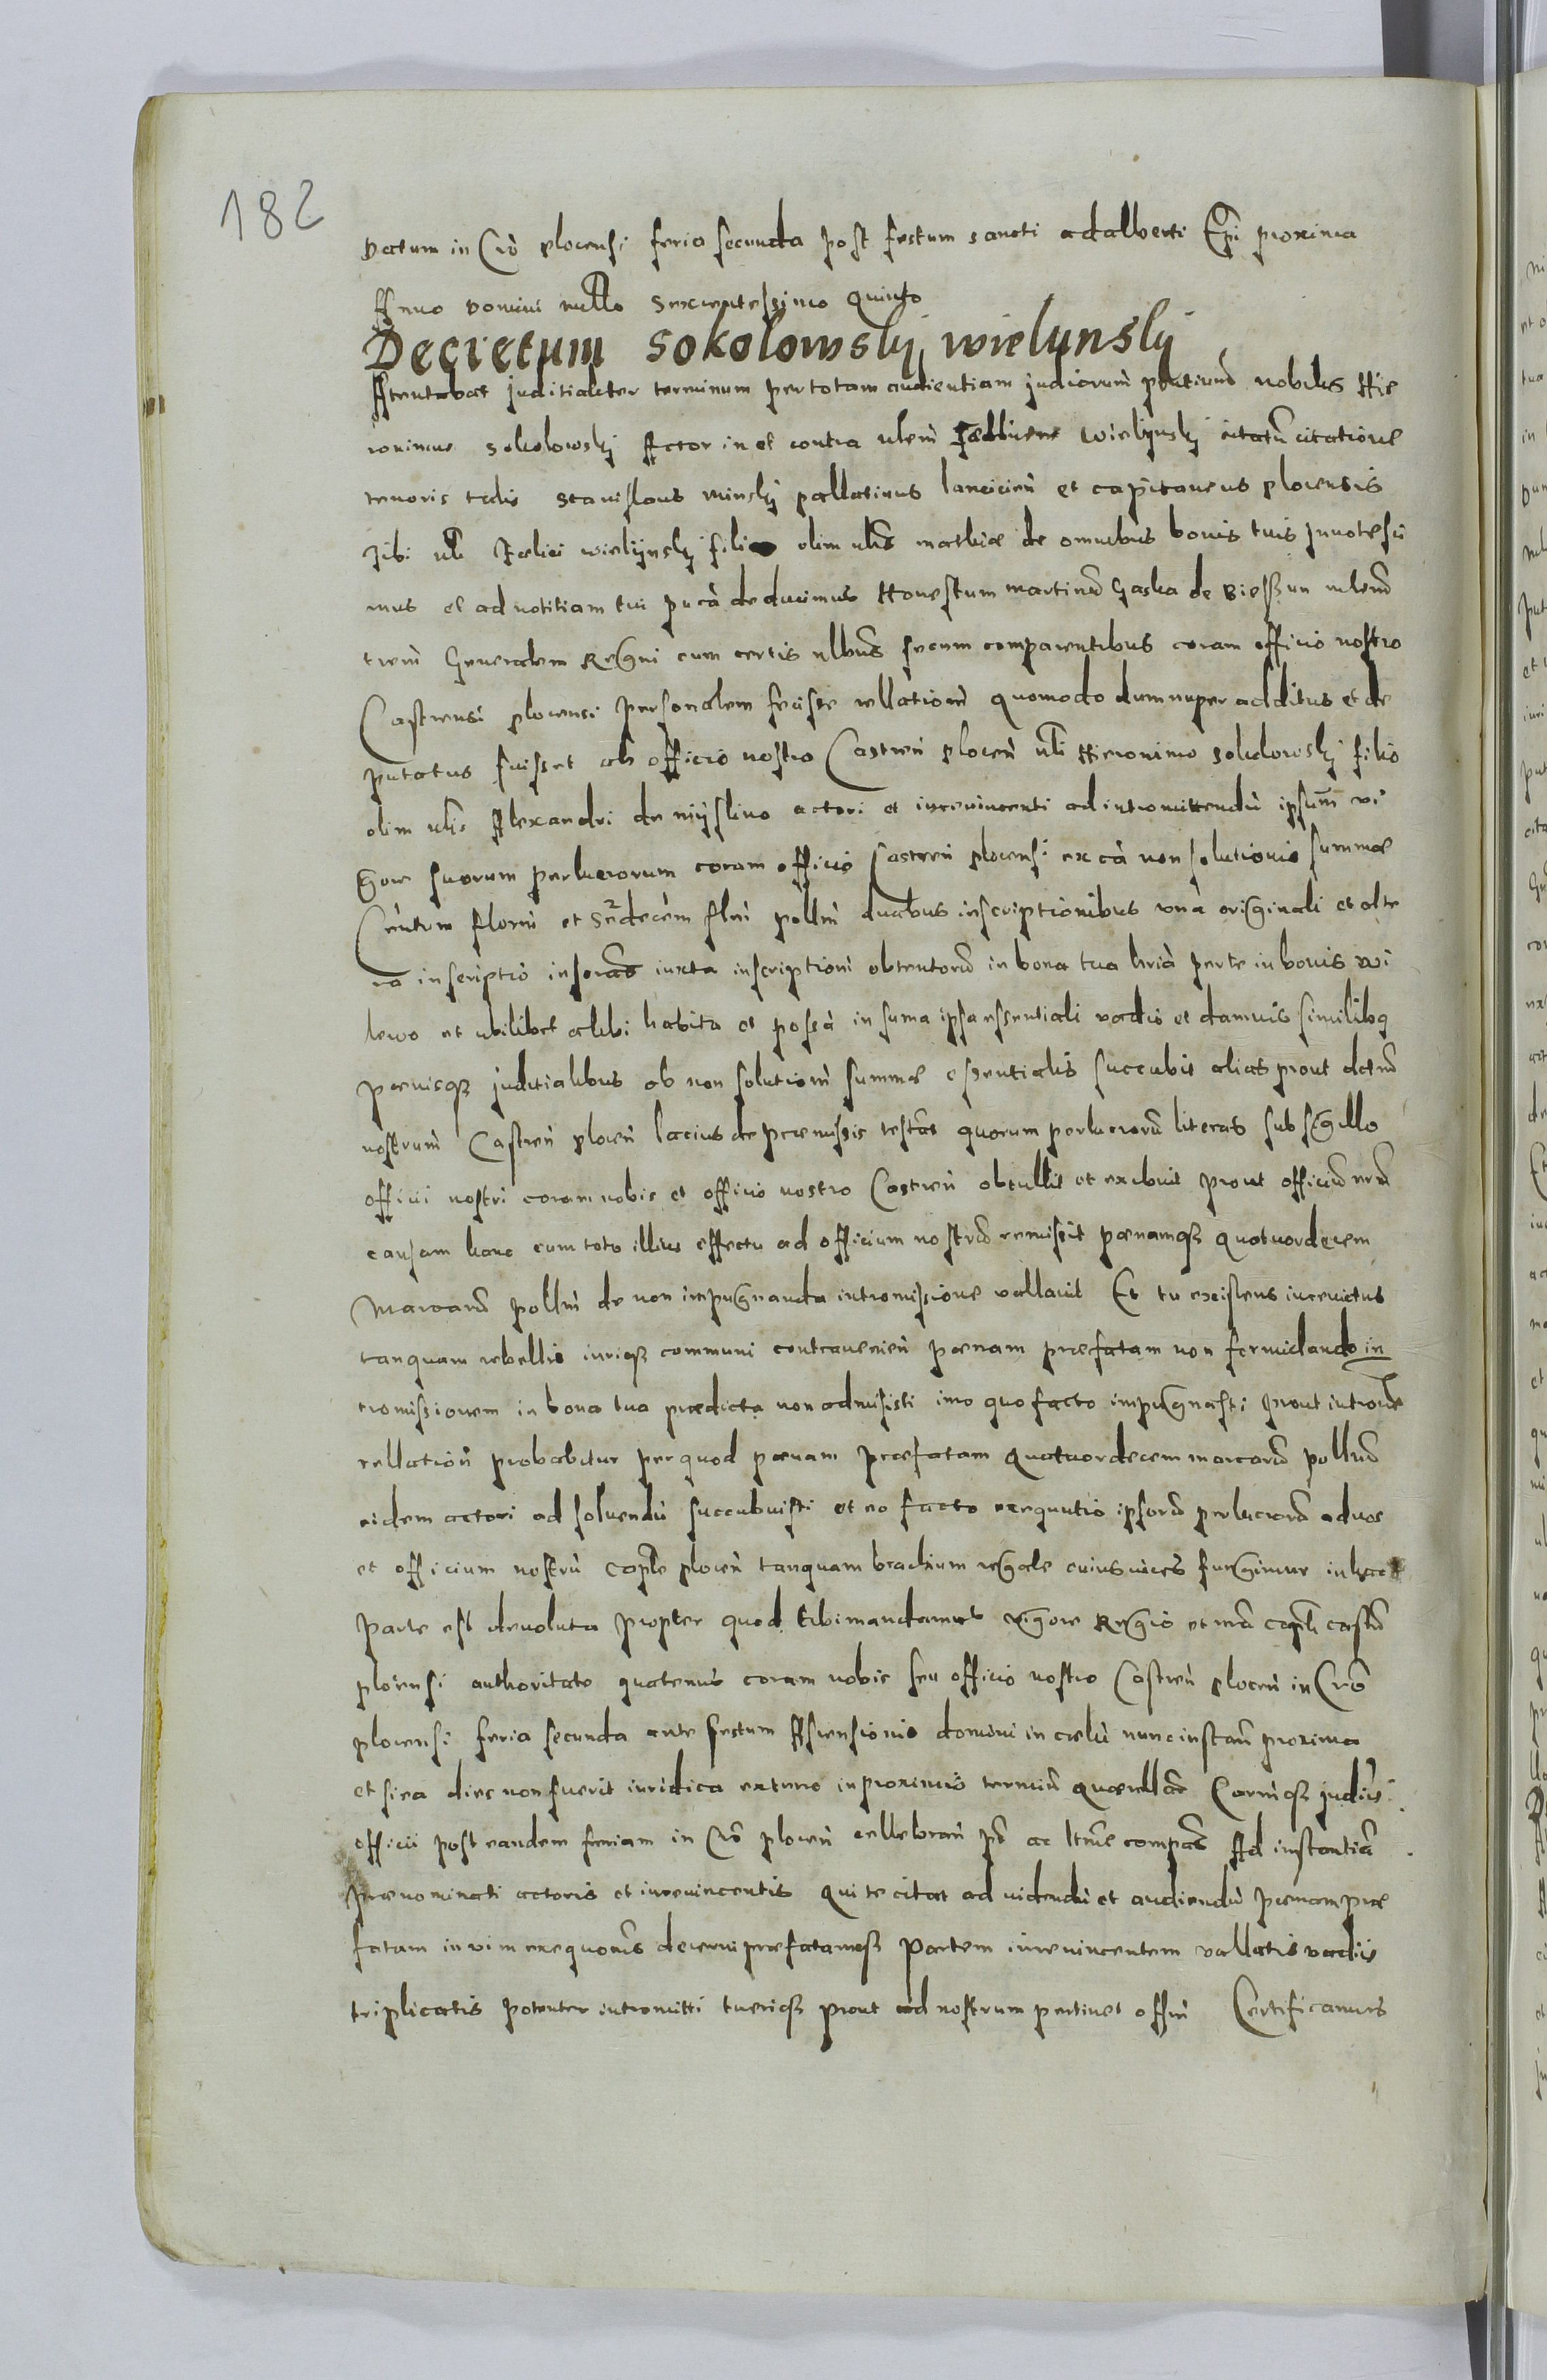 182
Datum in Cro plocensi feria secunda post festum sancti adalberti Epi proxima
Anno Domini millo sexcentessimo Quinto
Decretum Sokolowskij wielunskij
Atentabat juditialiter terminum per totam audientiam judiciorum pntium nobilis Hie
ronimus Sokolowskj Actor in et contra nlem Wielijnskj citatum citatione
tenoris talis Stanislaus minskj pallatinus lancicien et capitaneus plocensis
Tibi nli Felici wielijnskj filio olim nlis mathiae de omnibus bonis tuis Innotesci
mus et ad notitiam tui pnca deducimus Honestum martinum Gaska de Biessun mlem
trem Generalem Regni cum certis nlbus secum comparentibus coram officio nostro
Castrensi plocensi personalem fecisse rellationem quomodo dum nuper additus et de
putatus fuisset ab officio nostro Castren plocen nli Hieronimo Sokolowskj filio
olim nlis Alexandri de mijslino actori et iurevincenti ad intromittendu ipsum vi
gore suorum perlucrorum coram officio Castren plocensi ex ca non solutionis summae
Centum floren et Sedecem flni pollni duabus inscriptionibus una originali et alte
ra inscriptio iuxta inscriptioni obtentoru in bona tua hria per te in bonis wi
lewo et ubilibet alibi habita et possa in suma ipsa essentiali vadio et damnis similibq
paenisq juditialibus ob non solutionem summae essentialis succubit alias prout actum
nostrum Castren plocen lacius de praemissis testat quorum perlucroru literas sub sigillo
officii nostri coram nobis et officio nostro Castren obtullit et exibuit prout officiu nrm
causam hanc cum toto illius effectu ad officium nostru remissit paenamq quatuordecem
Marcaru pollni de non impugnanda intromissione vallavit Et tu existens iurevictus
tanquam rebellis iuriq communi contravenien paenam praefatam non formidando in
tromissionem in bona tua praedicta non admisisti imo quo facto impugnasti prout
rellation probabitur per quod paenam praefatam quatuordecem marcaru pollru
eidem actori ad solvendu succubuisti et eo facto exequutio ipsoru perlucroru ad nos
et officium nostru caple plocen tanquam brachium regale cuius vices fungimur in hac
parte est devoluta propter quod tibi mandamus vigore Regio et nra capli castru
plocensi authoritate quatenus coram nobis seu officio nostro Castren plocen in Cro
plocensi feria secunda ante festum Ascensionis domini in caelu nunc instan proxima
et si ea dies non fuerit iuridica extunc in proximis termin quaerellar Carniq judiis
officii post eandem feriam in Cro plocen cellebran ps ac ltme compas Ad instantia
praenominati actoris et iurevincentis qui te citat ad videndu et audiendu paenam prae
fatam in vim exequonis decerni praefatamq partem iurevincentem vallatis vadiis
triplicatis potenter intromitti tueriq prout ad nostrum pertinet offm Certificamus